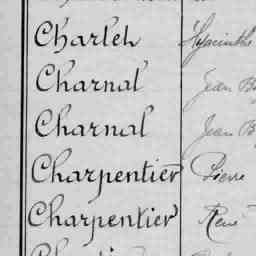 Charleh Hyacinthe
Charnal Jean B
Charnal Jean B
Charpentier Pierre
Charpentier René